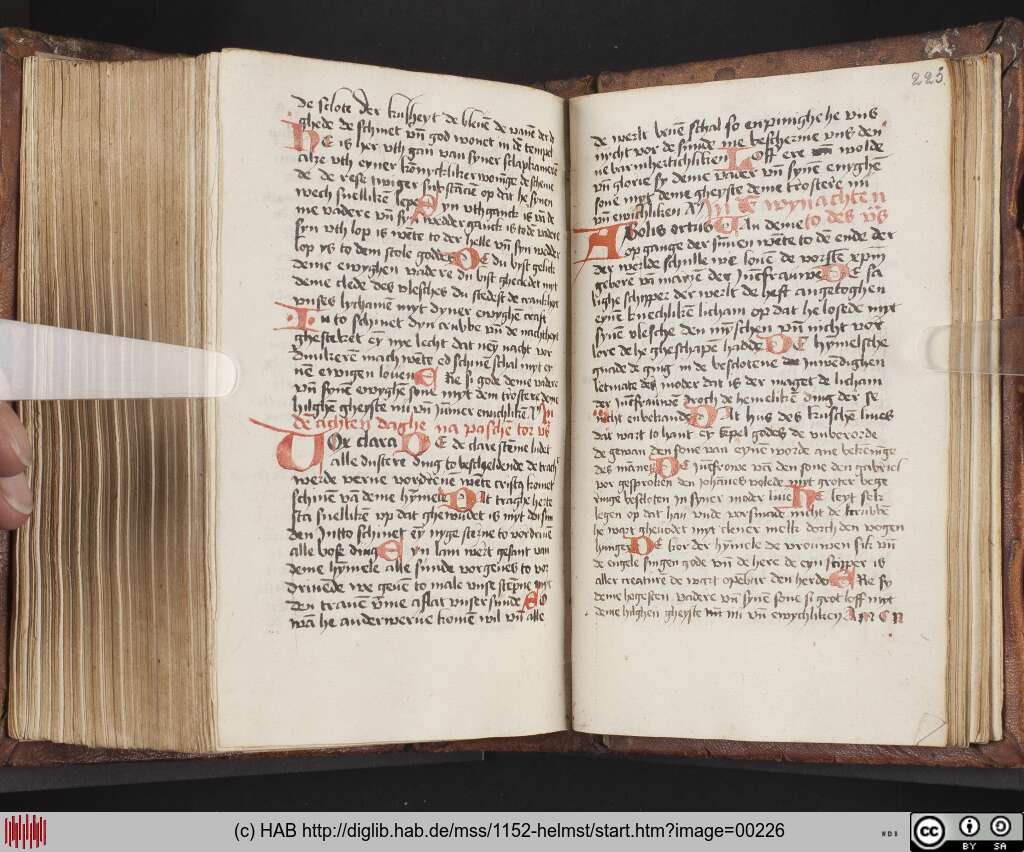 de slote der kuscheyt de bleuē de vanē der d
ghede de schinet vn̄ god wonet in de tempel
He is her vth gan van syner slapkameren
alze vth eyner konnyckliker woninge de schone
de de rese twiger substācien op dat he synen
wech snelliken lope Syn vthganck is vā de
me vadere vn̄ syn wedderganck is to dē vadere
syn vth lop is wēte to der helle vn̄ syn wedder
lop ys to dem stole goddes DE du byst gelick
deme ewyghen vadere du byst ghecledet myt
deme clede des vlesches du stedest de krancheit
vnses lychamē myt dyner ewyghē craft
Nu to schinet dyn crubbe vn̄ de nacht heft
ghesteket ey nye lecht dat nen nacht vor
dunkeren mach wēte ed schinen schal myt er
nē ewigen louen Ere si gode deme vadere
vn̄ synē ewyghē sone myt dem trostere deme
hilghē gheyste nu vn̄ jumer ewichlikē A In
de achten daghe na paschē tor vs
Vox clara DE de clare stēme ludet
alle dustere ding to bescheldende de drach
werde verne vordreuē wēte cristus komet
schinē vā deme hymele Dat traghe herte
sta snelliken vp dat ghewūdet is myt dorsun
den jutto schinet ey nyge sterne to vordriuē
alle bose ding Eyn lam wert gesant van
deme hymele alle sunde vorgeues to vor
driuēde we geuē to male vnse stēpne myt
den tranē vme aflat vnser sunde So
wā he anderwerue komē wil vn̄ alle
225
de werlt beuē schal so enpinighe he vns
nycht vor de sunde mē bescherme vns den
ne barmhertichliken Loff ere wolde
vn̄ glorie sy deme vader vn̄ synē enyghē
sone myt deme gheyste deme trostere nu
vn̄ ewichliken A In wynachten
A Solis ortus Van deme to des vs
op gange der sunnen wēte to dē ende der
der werlde schulle we louē de vorste xpm
geborē vā marien der Juncfrauwē DE sa
lighe schipper der werlt de heft angetoghen
eynē knechlikē licham op dat he losede myt
synē vlesche den mynschen vn̄ nicht vor
lore de he gheschapē hadde DE hymelsche
gnade de ging in de beslotene inwedighen
letmate des moder dat is der maget de licham
der Juncfrauwē droch de hemelikē ding der se
nicht enbekande Dat hus des kuschē liues
dat wart to hant ey tēpel godes de vnberorde
de gewan den sone van eynē worde ane bekennige
des mānes DE Juncfrowe wā den sone den gabriel
vor gesproken den Johānes volede myt groter bege
ringe besloten in syner moder liue He leyt sek
legen op dat hau vnde vorsmade nicht de krubbē
he wart ghevodet myt clener melk dorch den nogen
hunger DE kor der hymele de vrouwen sik vn̄
de engele singen gode vn̄ de here de eyn scipper is
aller creature de wart openbar den herden Ere sy
deme hogesten vadere vn̄ synē sone si grot loff myt
deme hilghen gheyste nu vn̄ ewychliken AMEN
(c) HAB http://diglib.hab.de/mss/1152-helmst/start.htm?image=00226
WDB
cc BY SA